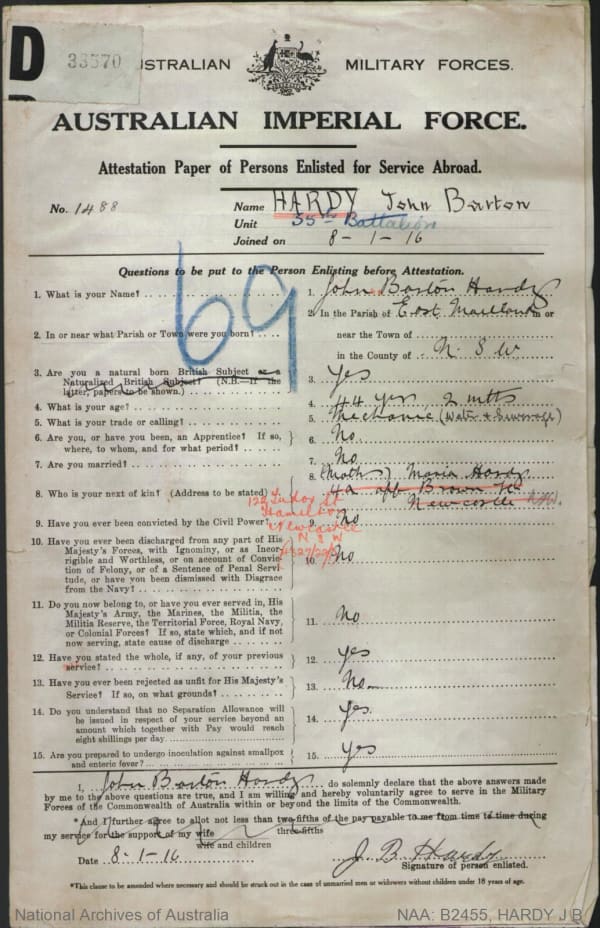 D
33570
AUSTRALIAN MILITARY FORCES.
AUSTRALIAN IMPERIAL FORCE.
Attestation Paper of Persons Enlisted for Service Abroad.
No. 1488
Name HARDY John Barton
Unit 35th Battalion
Joined on 8-1-16
69
Questions to be put to the Person Enlisting before Attestation.
1. What is your Name? 1. John Barton Hardy
2. In or near what Parish or Town were you born? 2. In the Parish of East Maitland in or
near the Town of
in the County of N.S.W
3. Are you a natural born British Subject or a
Naturalized British Subject? (N.B.—If the
latter, papers to be shown.) 3. Yes
4. What is your age? 4. 44 yrs 2 mths
5. What is your trade or calling? 5. Mechanic (Water & Sewerage)
6. Are you, or have you been, an Apprentice? If so,
where, to whom, and for what period? 6. No
7. Are you married? 7. No
8. Who is your next of kin? (Address to be stated) 8. (Mother) Maria Hardy
Brown St
Newcastle NSW.
124 Tudor St
Hamilton
Newcastle
N S W
9. Have you ever been convicted by the Civil Power? 9. No
10. Have you ever been discharged from any part of His
Majesty's Forces, with Ignominy, or as Incor-
rigible and Worthless, or on account of Convic-
tion of Felony, or of a Sentence of Penal Servi-
tude, or have you been Dismissed with Disgrace
from the Navy? 10. No
11. Do you now belong to, or have you ever served in, His
Majesty's Army, the Marines, the Militia, the
Militia Reserve, the Territorial Force, Royal Navy,
or Colonial Forces? If so, state which, and if not
now serving, state cause of discharge 11. No
12. Have you stated the whole, if any, of your previous
service? 12. Yes
13. Have you ever been rejected as unfit for His Majesty's
Service? If so, on what grounds? 13. No
14. Do you understand that no Separation Allowance will
be issued in respect of your service beyond an
amount which together with Pay would reach
eight shillings per day. 14. Yes
15. Are you prepared to undergo inoculation against smallpox
and enteric fever? 15. Yes
I, John Barton Hardy do solemnly declare that the above answers made
by me to the above questions are true, and I am willing and hereby voluntarily agree to serve in the Military
Forces of the Commonwealth of Australia within or beyond the limits of the Commonwealth.
*And I further agree to allot not less than two-fifths of the pay payable to me from time to time during
three-fifths
my service for the support of my wife
wife and children
Date 8-1-16
J. B Hardy
Signature of person enlisted.
*This clause to be amended where necessary and should be struck out in the case of unmarried men or widowers without children under 18 years of age.
National Archives of Australia
NAA: B2455, HARDY J B